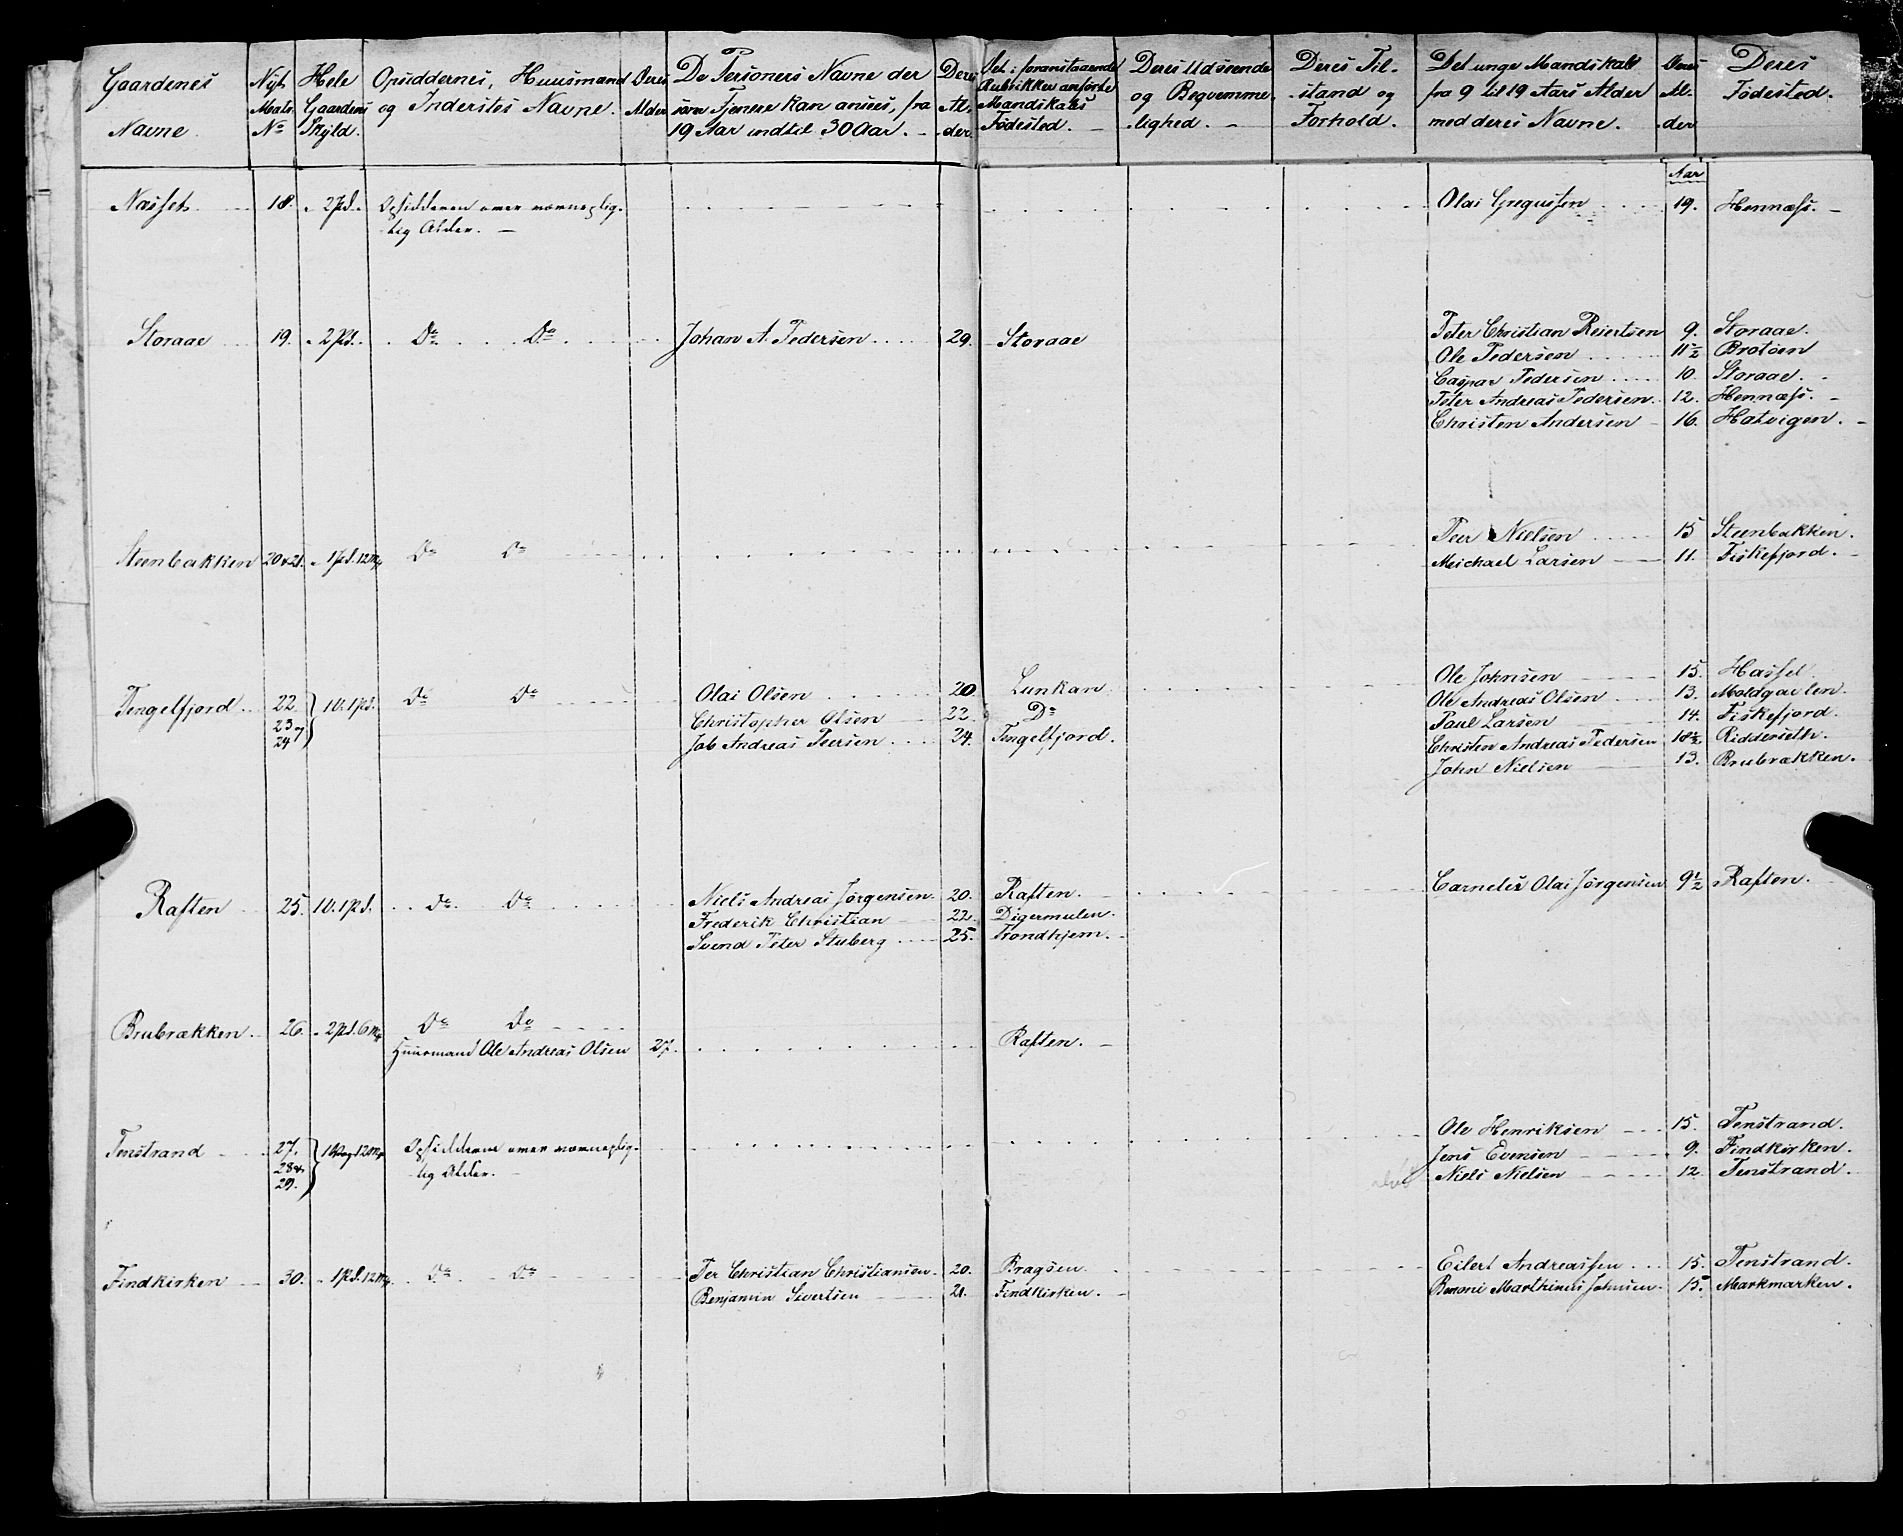 Gaardenes Navne. | Nyt Matr. No | Hele Gaardens Skyld. | Opsiddernes, Huusmænd og Inderstes Navne. | Deres Alder | De Personers Navne der som Tjenere kan ansees, fra 19 Aar indtil 30 Aar. | Deres Alder | Det i foranstaaende Rubrikker anførte Mandskabs Fødested. | Deres Udseende og Beqvemmelighed. | Deres Tilstand og Forhold. | Det unge Mandskab fra 9 til 19 Aars Alder med deres Navne. | Deres Alder | Deres Fødested.
Aar
Næsset | 18. | 2pd. | Opsidderen over værnepligtig Alder. | Olai Gregussen | 19. | Hennæss.
Storaae | 19. | 2pd. | Do Do | Johan A. Pedersen | 29. | Storaae | Peter Christian Reiertsen | 9. | Storaae.
Ole Pedersen | 11½ | Brotøen
Caspar Pedersen | 10. | Storaae.
Peter Andreas Pedersen | 12. | Hennæss.
Christen Andersen | 16. | Hatvigen.
Steenbakken | 20 & 21. | 1pd. 12mk | Do Do | Peer Nielsen | 15 | Steenbakken.
Meichael Larsen | 11. | Fiskefjord.
Tengelfjord | 22. 23 og 24 | 10. 1pd. | Do Do | Olai Olsen | 20 | Lunkan | Ole Johnsen | 15. | Hassel
Christopher Olsen | 22. | Do | Ole Andreas Olsen | 13. | Moldgavlen.
Job Andreas Peersen | 24. | Tengelfjord. | Paul Larsen | 14. | Fiskefjord.
Christen Andreas Pedersen | 18½ | Ridderseth.
John Nielsen | 13. | Brubrækken.
Raften | 25. | 10. 1pd. | Do Do | Niels Andreas Jørgensen | 20. | Raften. | Carnelis Olai Jørgensen | 9½ | Raften.
Frederik Christian | 22. | Digermulen.
Svend Peter Stuberg | 25. | Trondhjem.
Brubrækken | 26. | 2pd. 6mk | Do Do
Huusmand Ole Andreas Olsen | 27. | Raften.
Tenstrand | 27. 28 & 29. | 12mk | Opsidderne over værnepligtig Alder. | Ole Henriksen | 15. | Tenstrand.
Jens Evensen | 9. | Findkirken.
Niels Nielsen | 12. | Tenstrand.
Findkirken | 30. | 1pd. 12mk | Do Do | Per Christian Christiansen | 20. | Bragsen. | Eilert Andreassen | 15. | Tenstrand.
Benjamin Sivertsen | 21. | Findkirken. | Benoni Marthinus Johnsen | 15. | Markmarken.